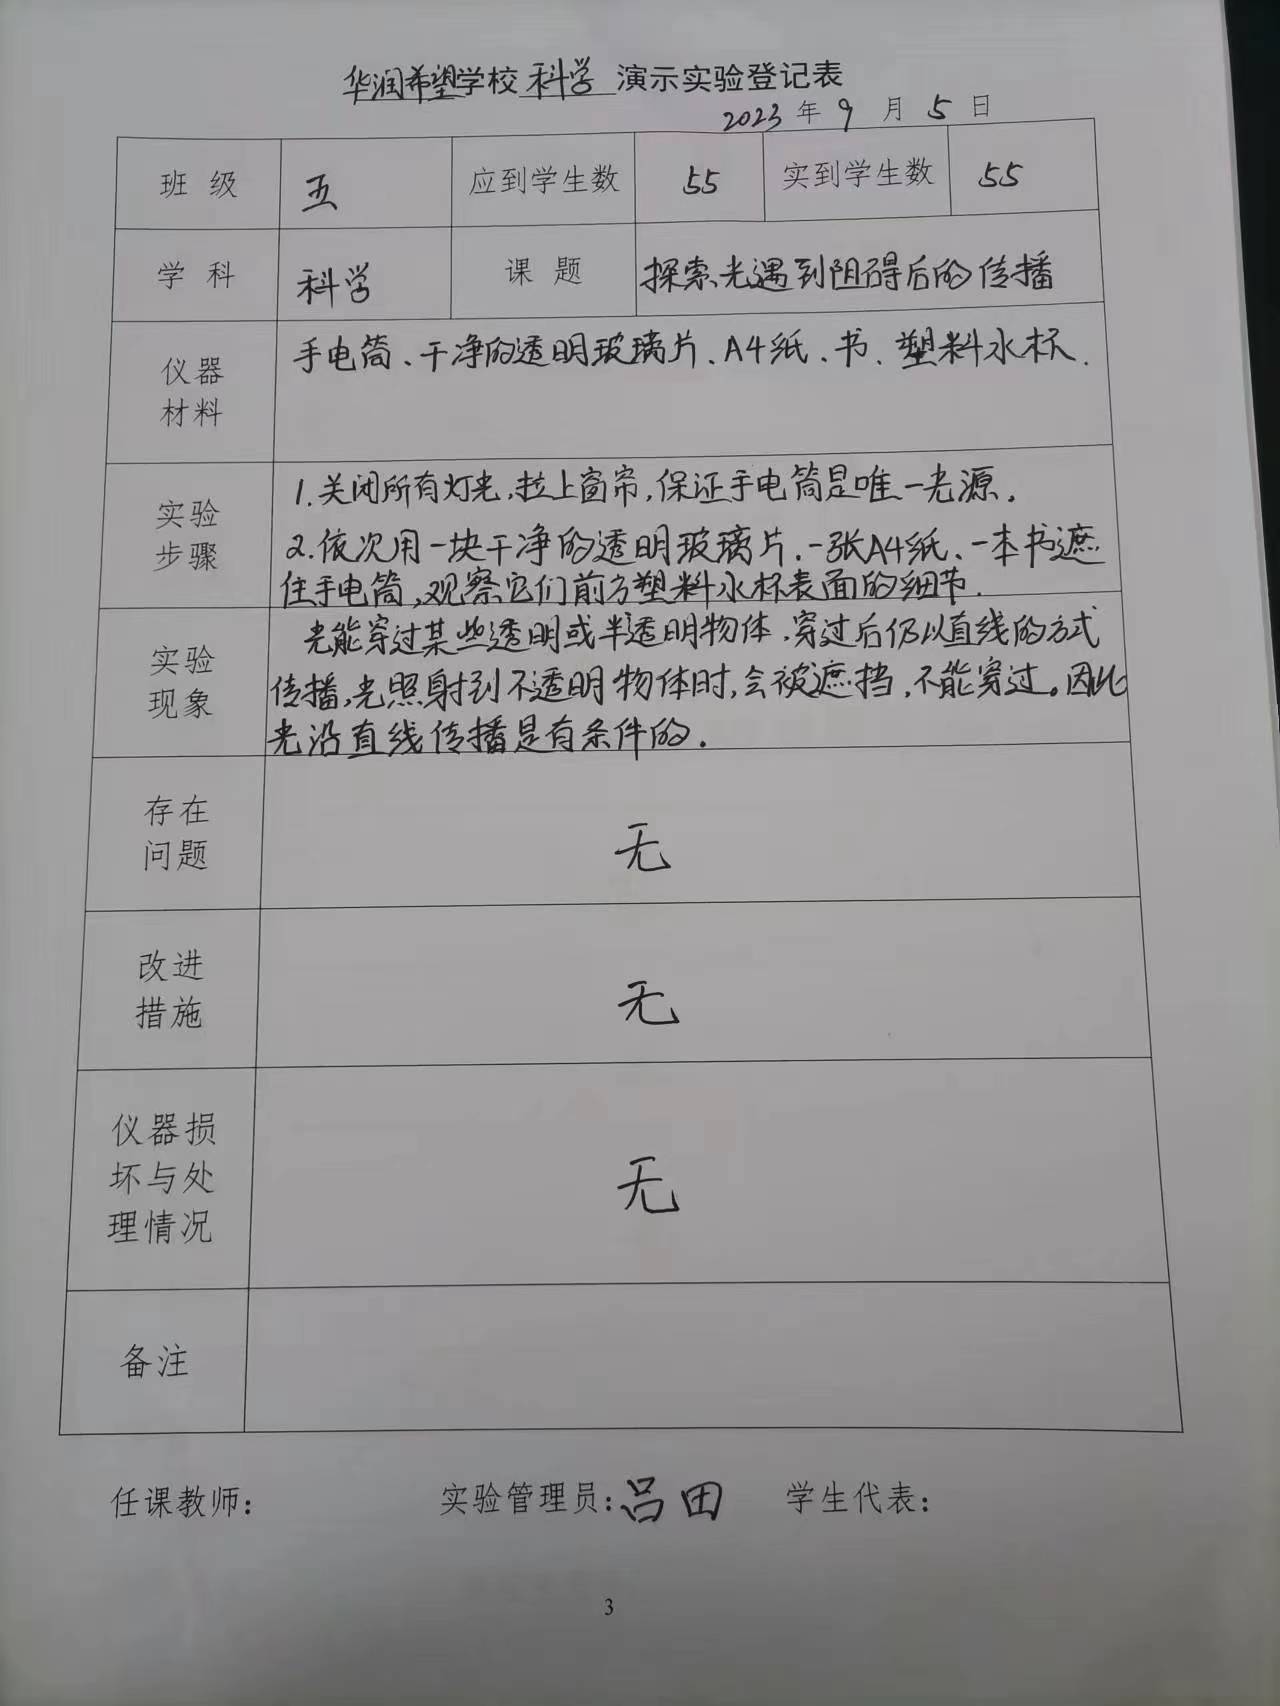 华润希望学校 科学 演示实验登记表
2023 年 9 月 5 日
班 级 五 应到学生数 55 实到学生数 55
学 科 科学 课 题 探索光遇到阻碍后的传播
仪器
材料
手电筒、干净的透明玻璃片、A4纸、书、塑料水杯.
实验
步骤
1.关闭所有灯光,拉上窗帘,保证手电筒是唯一光源.
2.依次用一块干净的透明玻璃片.一张A4纸、一本书遮
住手电筒,观察它们前方塑料水杯表面的细节.
实验
现象
光能穿过某些透明或半透明物体,穿过后仍以直线的方式
传播,光照射到不透明物体时,会被遮挡,不能穿过。因此
光沿直线传播是有条件的.
存在
问题
无
改进
措施
无
仪器损
坏与处
理情况
无
备注
任课教师: 实验管理员:吕田 学生代表:
3